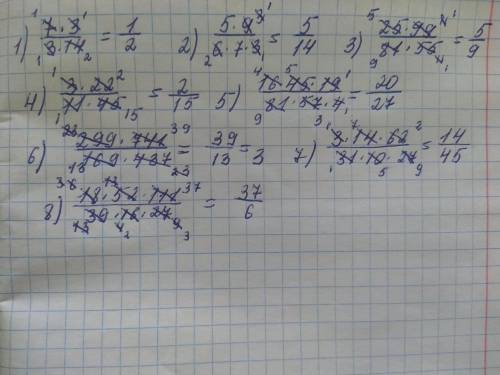 1) 7·3/3·14 = 1/2 2) 5·9/6·7·3 = 5/14 3) 25·99/81·55 = 5/9
4) 3·22/11·45 = 2/15 5) 16·45·19/81·57·4 = 20/27
6) 299·741/169·437 = 39/13 = 3 7) 3·14·62/31·10·27 = 14/45
8) 18·52·111/39·16·27 = 37/6